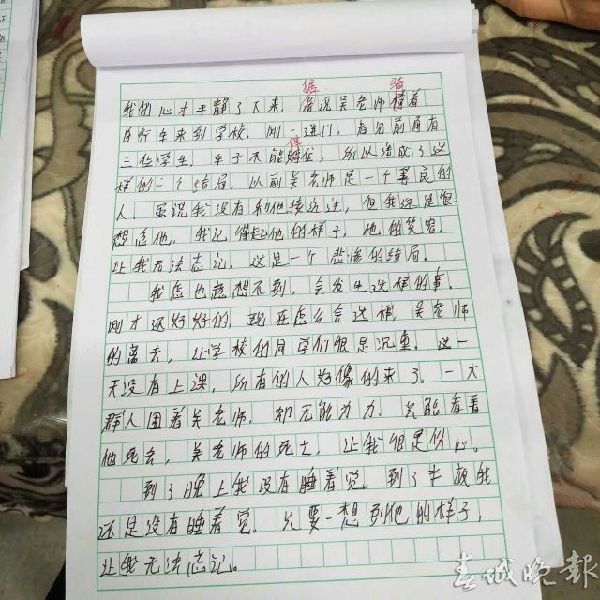 据 骑
我的心才平静了下来，据说吴老师骑着
自行车来到学校，刚一进门，有分前面有
停
三位学生，车子不能住，所以造成了这
样的一个结局。以前吴老师是一个善良的
人，虽说我没有和他接近过，但我还是很
想念他，我记得起他的样子，他的笑容，
让我无法忘记，这是一个悲惨的结局。
我怎也想不到，会发生这样的事，
刚才还好好的，现在怎么会这样，吴老师
的离去，让学校的同学们很是沉重。这一
天没有上课，所有的人好像的来了。一大
群人围着吴老师，却无能为力。只能看着
他死去，吴老师的死亡，让我很是伤心。
到了晚上我没有睡着觉，到了半夜我
还是没有睡着觉。只要一想到他的样子，
让我无法忘记。
春城晚报